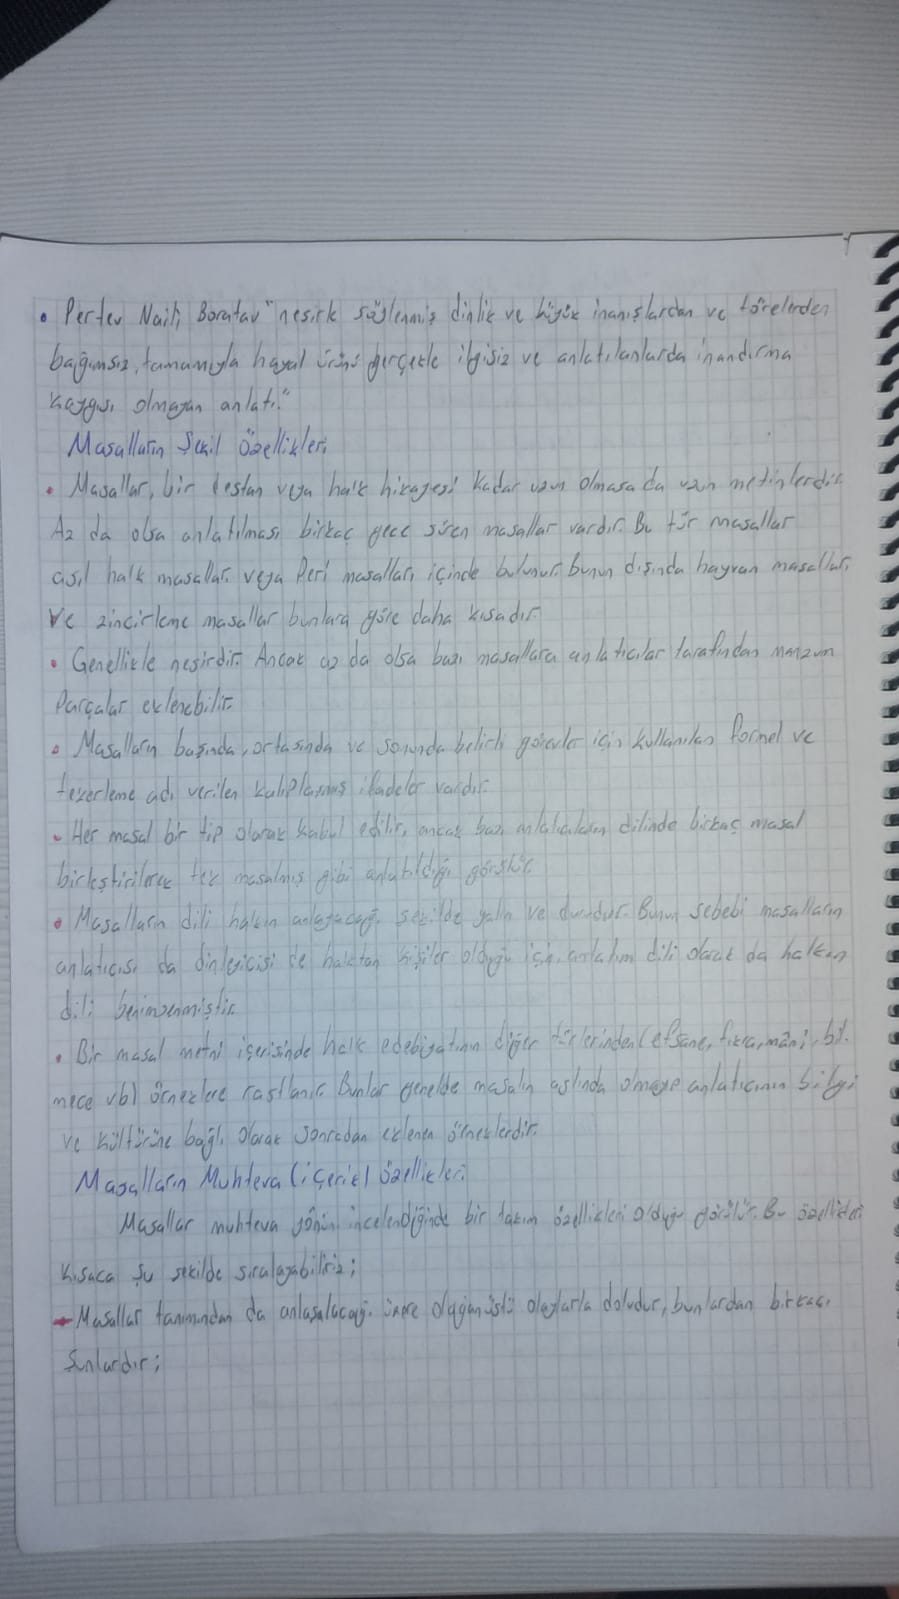 • Pertev Naili Boratav "nesirle söylenmiş dinlik ve büyük inanışlardan ve törelerden
bağımsız, tamamıyla hayal ürünü gerçekle ilgisiz ve anlatılanlarda inandırma
kaygısı olmayan anlatı."
Masalların Şekil Özellikleri
• Masallar, bir destan veya halk hikayesi kadar uzun olmasa da uzun metinlerdir.
Az da olsa anlatılması birkaç gece süren masallar vardır. Bu tür masallar
asıl halk masalları veya Peri masalları içinde bulunur. Bunun dışında hayvan masalları
ve zincirleme masallar bunlara göre daha kısadır.
• Genellikle nesirdir. Ancak az da olsa bazı masallara anlatıcılar tarafından manzum
Parçalar eklenebilir.
• Masalların başında, ortasında ve sonunda belirli görevler için kullanılan formel ve
tekerleme adı verilen kalıplaşmış ifadeler vardır.
• Her masal bir tip olarak kabul edilir, ancak bazı anlatıcıların dilinde birkaç masal
birleştirilerek tek masalmış gibi anlatıldığı görülür.
• Masalların dili halkın anlayacağı şekilde yalın ve durudur. Bunun sebebi masalların
anlatıcısı da dinleyicisi de halktan kişiler olduğu için, anlatım dili olarak da halkın
dili benimsenmiştir.
• Bir masal metni içerisinde halk edebiyatının diğer türlerinden (efsane, fıkra, mâni, bil-
mece vb) örneklere rastlanır. Bunlar genelde masalın aslında olmayıp anlatıcının bilgi
ve kültürüne bağlı olarak sonradan eklenen örneklerdir.
Masalların Muhteva (içerik) özellikleri
Masallar muhteva yönün incelendiğinde bir takım özellikleri olduğu görülür. Bu özellikleri
kısaca şu şekilde sıralayabiliriz;
- Masallar tanımından da anlaşılacağı üzere olağanüstü olaylarla doludur, bunlardan birkaçı
şunlardır;